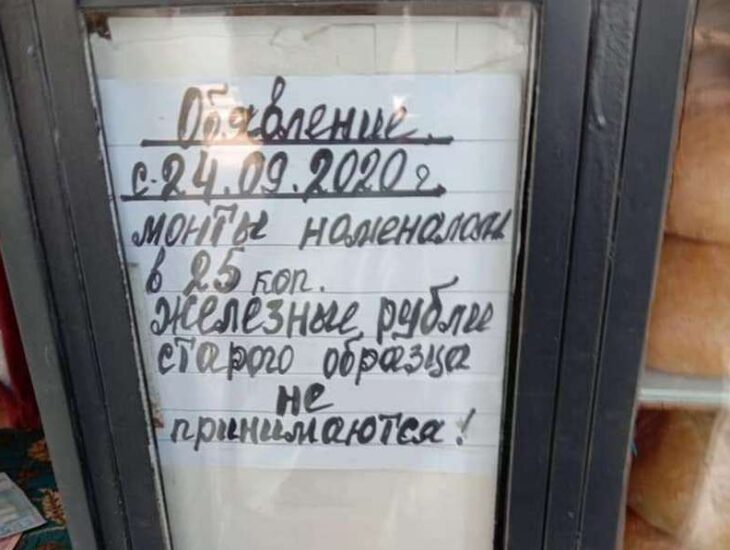 Обявление.
с-24.09.2020г.
монты наменалом
в 25 коп.
железные рубли
старого образца
не
принимаются!